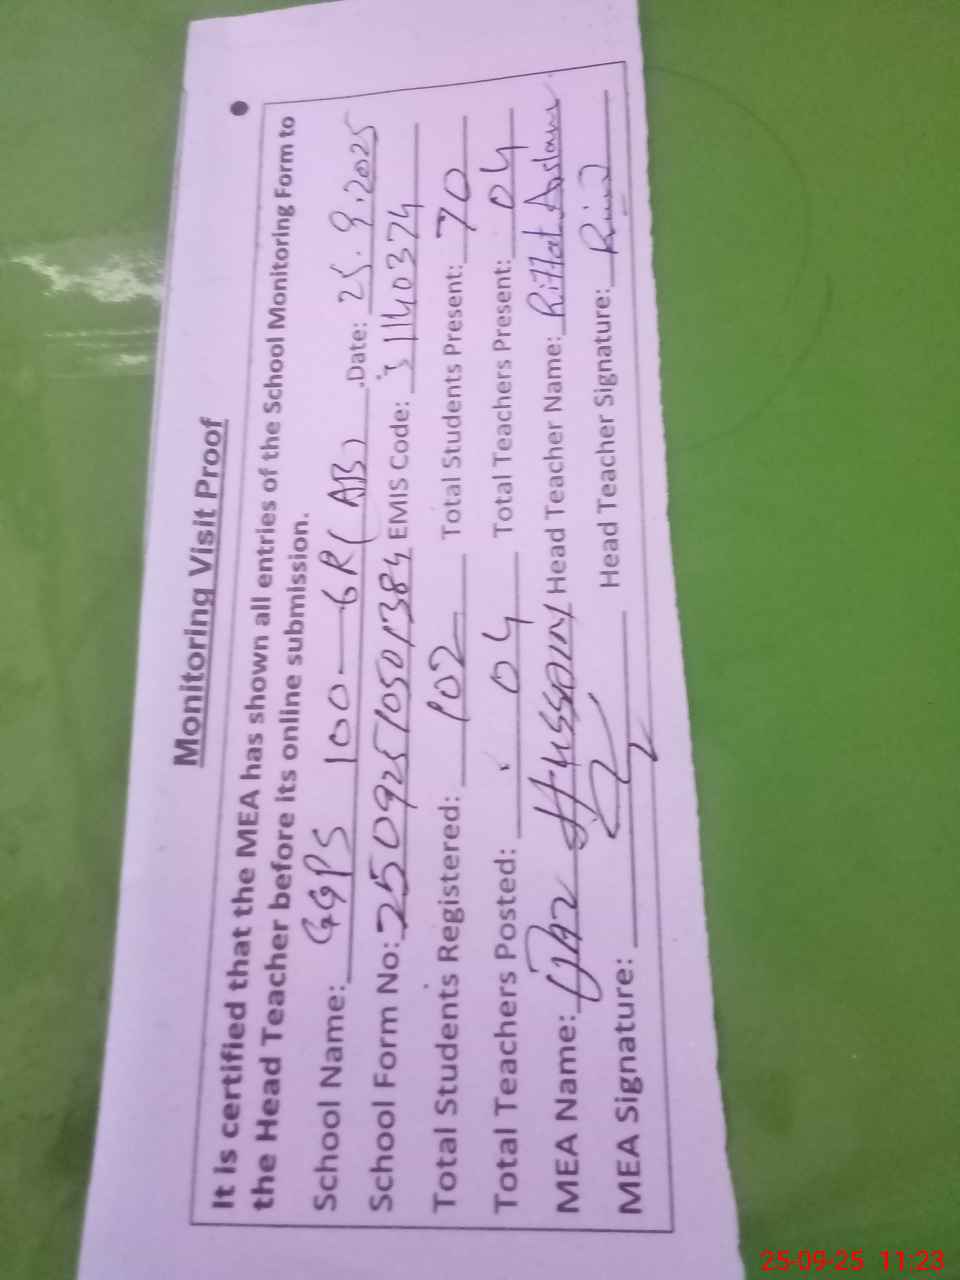 Monitoring Visit Proof
It is certified that the MEA has shown all entries of the School Monitoring Form to
the Head Teacher before its online submission.
School Name: GGPS 100-6R(AB) .Date: 25.9.2025
School Form No: 25092510501384 EMIS Code: 31140374
Total Students Registered: 102 Total Students Present: 70
Total Teachers Posted: 04 Total Teachers Present: 04
MEA Name: Hussain Head Teacher Name: Riffat Aslam
MEA Signature: Head Teacher Signature:
25-09-25 11:23